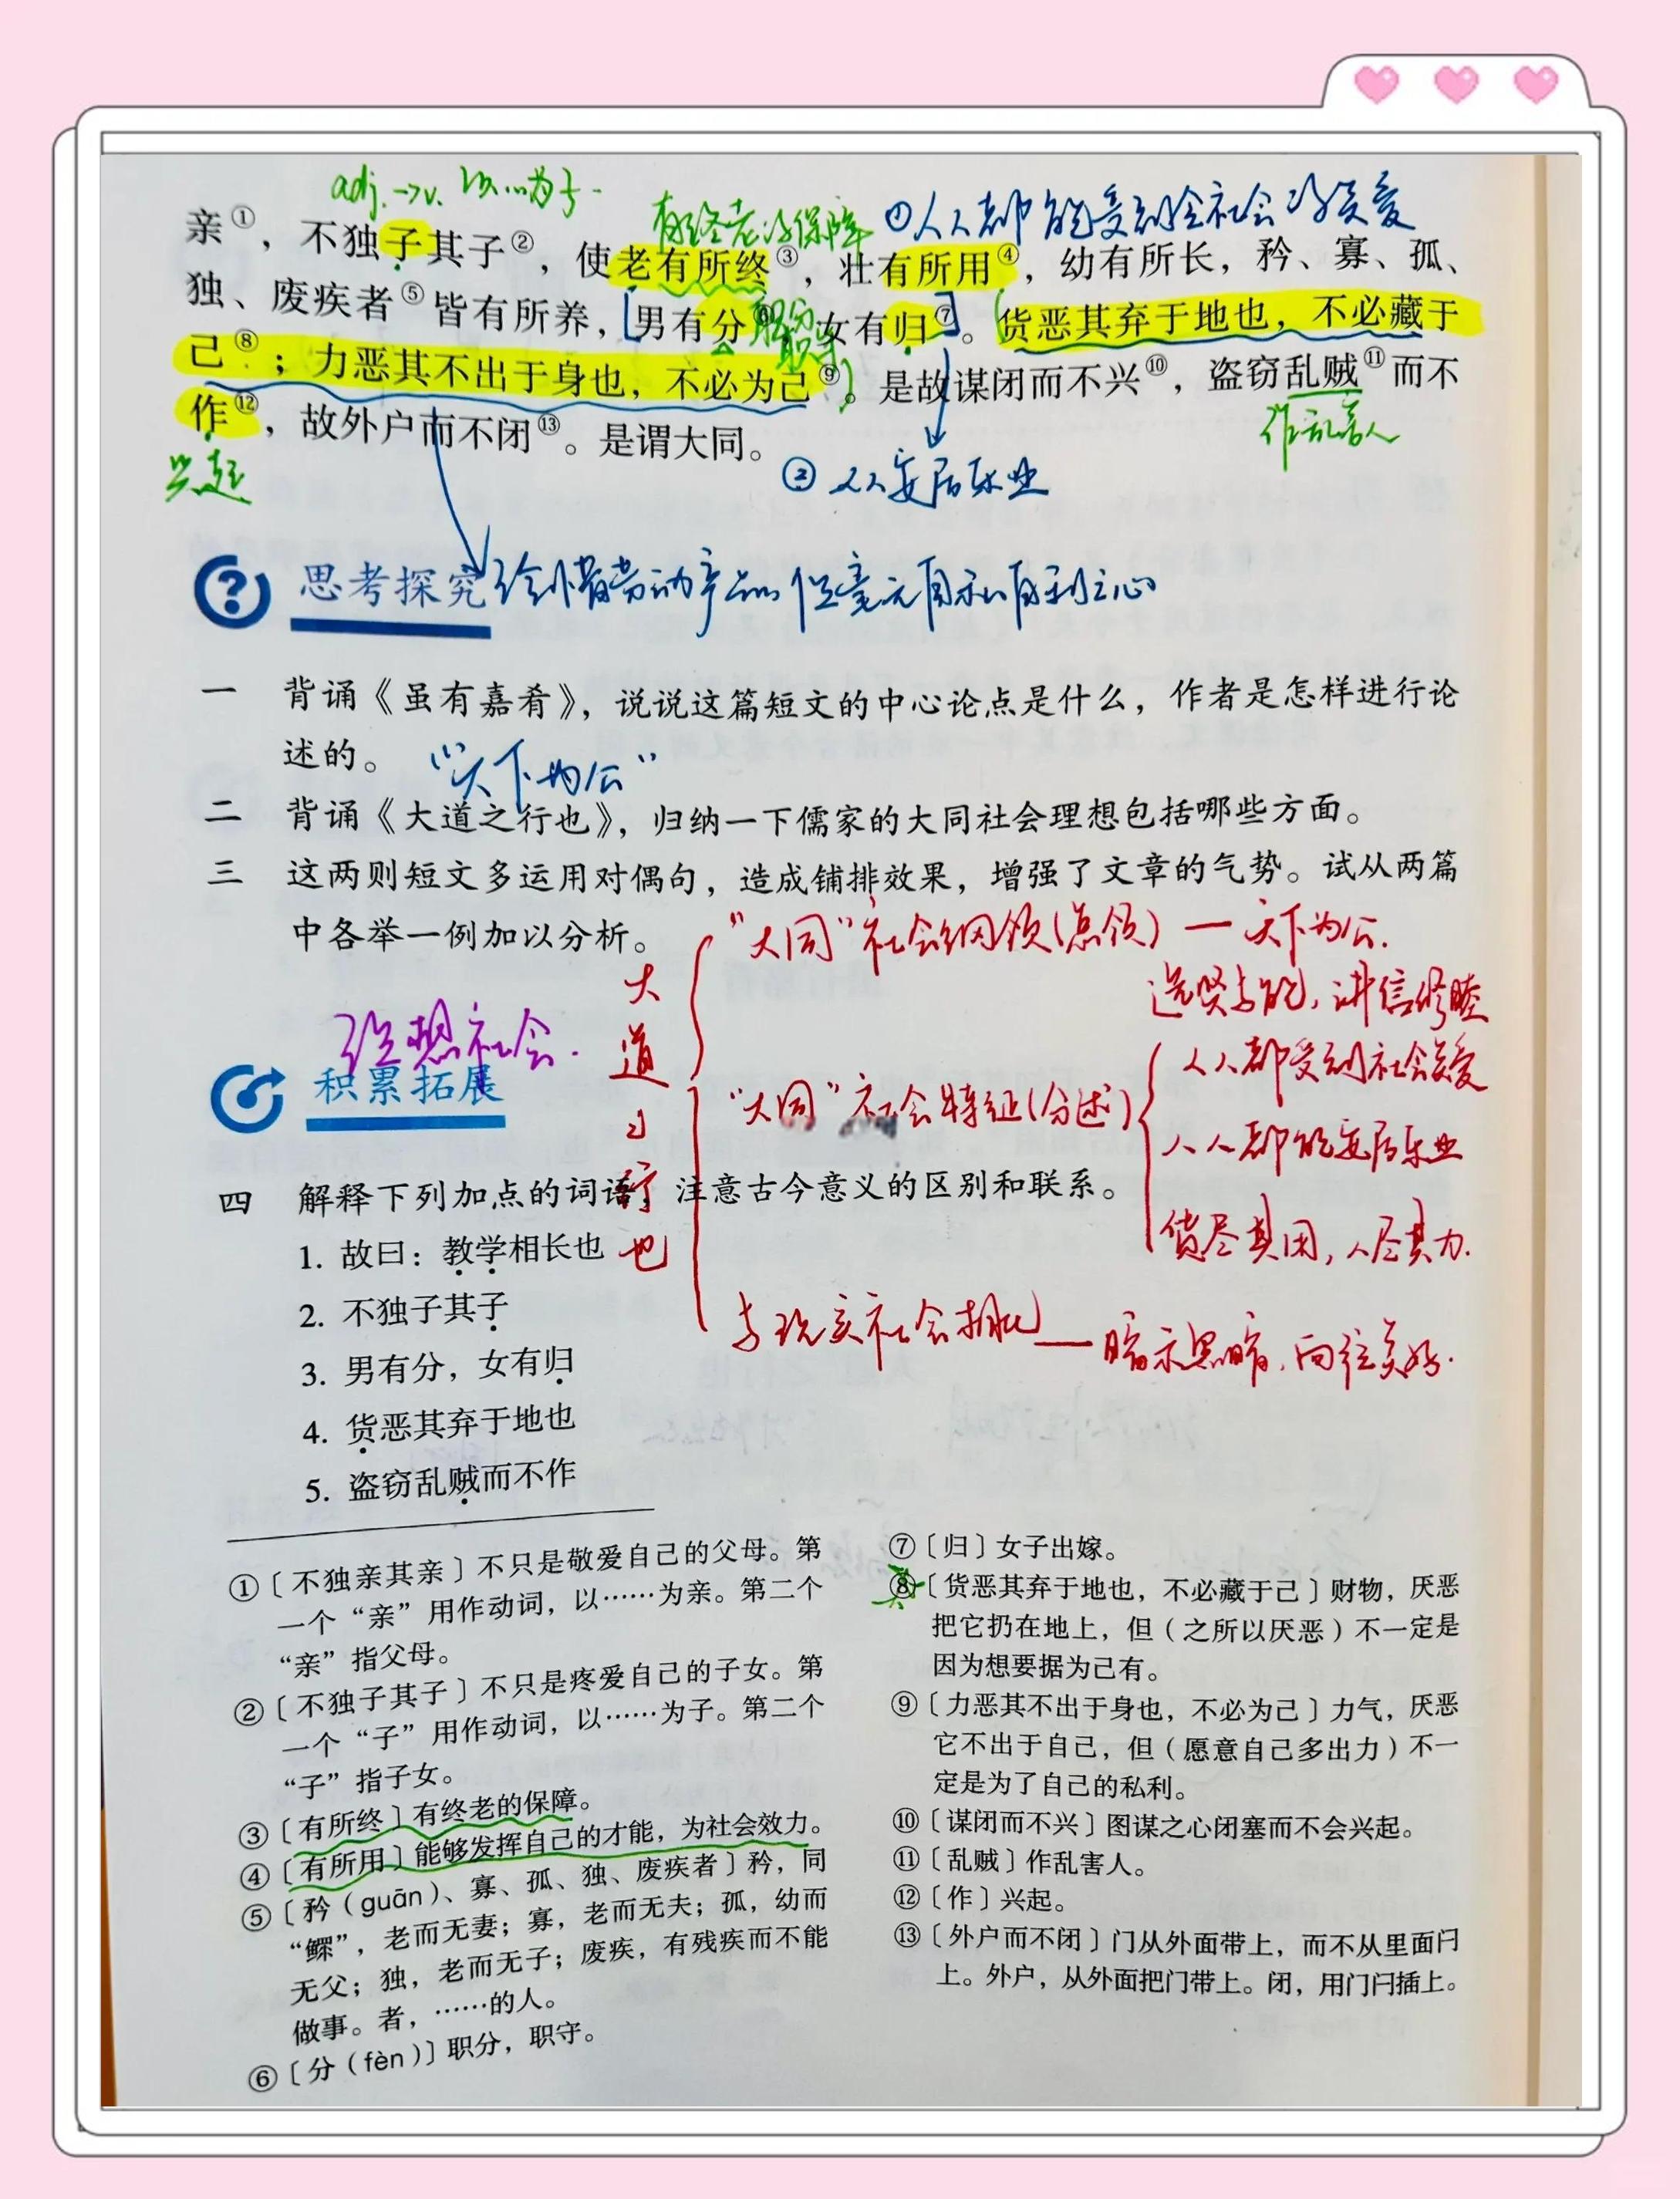 adj.→v. 以…为子.
有终老的保障
①人人都能受到全社会的关爱
亲①，不独子其子②，使老有所终③，壮有所用④，幼有所长，矜、寡、孤、
独、废疾者⑤皆有所养，男有分⑥，女有归⑦。货恶其弃于地也，不必藏于
职分
职守
己⑧；力恶其不出于身也，不必为己⑨。是故谋闭而不兴⑩，盗窃乱贼⑪而不
作⑫，故外户而不闭⑬。是谓大同。
作乱害人
兴起
②人人安居乐业
思考探究
珍惜劳动产品 但毫无自私自利之心
一 背诵《虽有嘉肴》，说说这篇短文的中心论点是什么，作者是怎样进行论
述的。
“天下为公”
二 背诵《大道之行也》，归纳一下儒家的大同社会理想包括哪些方面。
三 这两则短文多运用对偶句，造成铺排效果，增强了文章的气势。试从两篇
中各举一例加以分析。
大道之行也
“大同”社会纲领(总领) — 天下为公.
选贤与能，讲信修睦
理想社会.
人人都受到社会关爱
“大同”社会特征(分述)
人人都能安居乐业
货尽其用，人尽其力.
与现实社会对比 — 暗示黑暗，向往美好.
积累拓展
四 解释下列加点的词语，注意古今意义的区别和联系。
1. 故曰：教学相长也
2. 不独子其子
3. 男有分，女有归
4. 货恶其弃于地也
5. 盗窃乱贼而不作
①〔不独亲其亲〕不只是敬爱自己的父母。第
一个“亲”用作动词，以……为亲。第二个
“亲”指父母。
②〔不独子其子〕不只是疼爱自己的子女。第
一个“子”用作动词，以……为子。第二个
“子”指子女。
③〔有所终〕有终老的保障。
④〔有所用〕能够发挥自己的才能，为社会效力。
⑤〔矜（guān）、寡、孤、独、废疾者〕矜，同
“鳏”，老而无妻；寡，老而无夫；孤，幼而
无父；独，老而无子；废疾，有残疾而不能
做事。者，……的人。
⑥〔分（fèn）〕职分，职守。
⑦〔归〕女子出嫁。
⑧〔货恶其弃于地也，不必藏于己〕财物，厌恶
把它扔在地上，但（之所以厌恶）不一定是
因为想要据为己有。
⑨〔力恶其不出于身也，不必为己〕力气，厌恶
它不出于自己，但（愿意自己多出力）不一
定是为了自己的私利。
⑩〔谋闭而不兴〕图谋之心闭塞而不会兴起。
⑪〔乱贼〕作乱害人。
⑫〔作〕兴起。
⑬〔外户而不闭〕门从外面带上，而不从里面闩
上。外户，从外面把门带上。闭，用门闩插上。